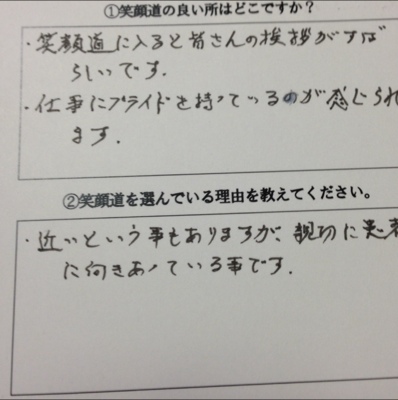 ①笑顔道の良い所はどこですか？
・笑顔道に入ると皆さんの挨拶がすば
らしいです.
・仕事にプライドを持っているのが感じられ
ます.
②笑顔道を選んでいる理由を教えてください。
・近いという事もありますが、親切に患者
に向きあっている事です.